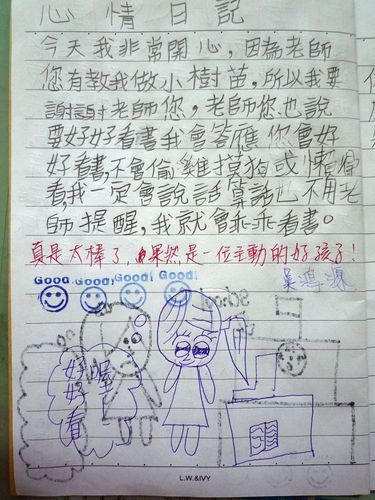 心情日記
今天我非常開心，因為老師
您有教我做小樹苗，所以我要
謝謝老師您，老師您也說
要好好看書我會答應你會好
好看書，不會偷雞摸狗或懶惰
看，我一定會說話算話也不用老
師提醒，我就會乖乖看書。
真是太棒了，果然是一位主動的好孩子！
Good! Good! Good! Good!
school
好好看
喔
L.W.&IVY